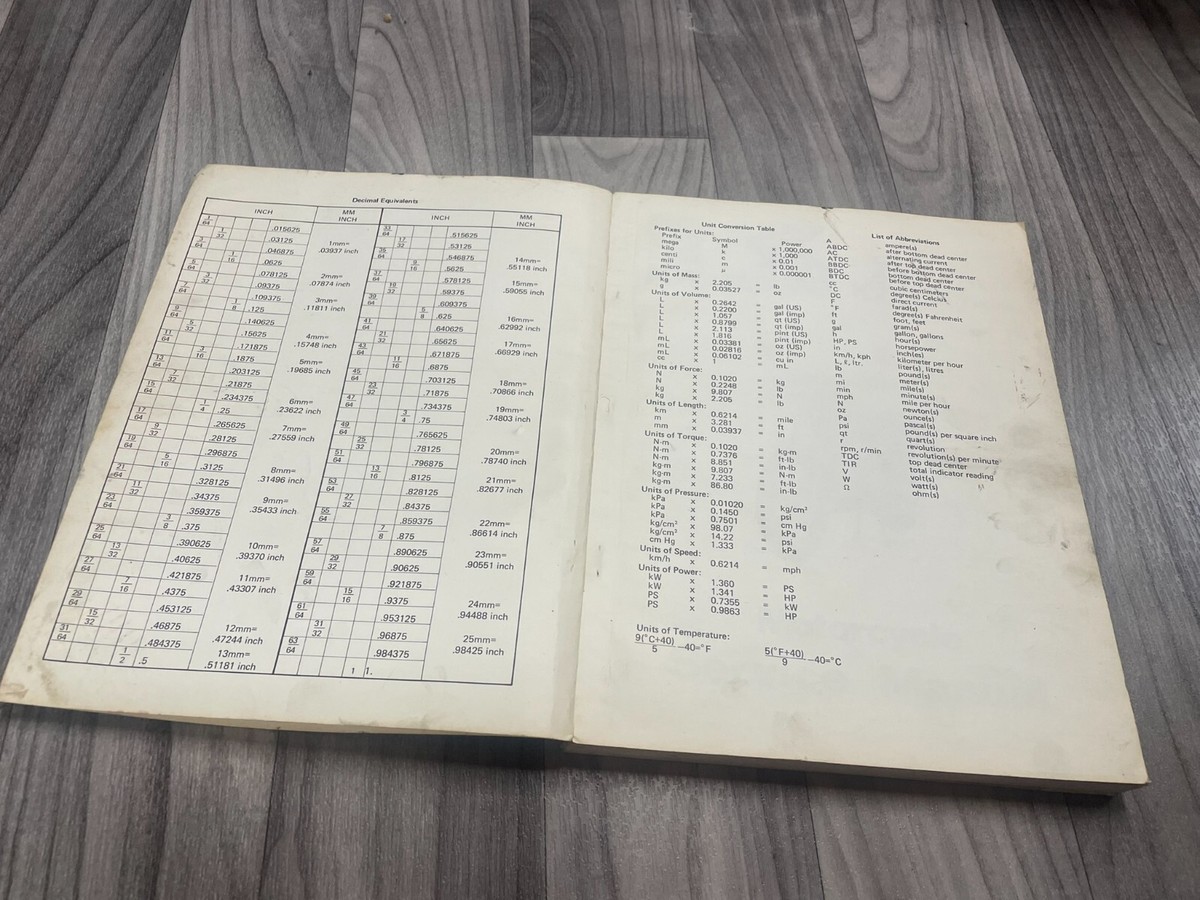 Decimal Equivalents
INCH MM INCH
1/64 .015625
1/32 .03125
3/64 .046875 1mm= .03937 inch
1/16 .0625
5/64 .078125
3/32 .09375 2mm= .07874 inch
7/64 .109375
1/8 .125 3mm= .11811 inch
9/64 .140625
5/32 .15625 4mm= .15748 inch
11/64 .171875
3/16 .1875
13/64 .203125 5mm= .19685 inch
7/32 .21875
15/64 .234375 6mm= .23622 inch
1/4 .25
17/64 .265625 7mm= .27559 inch
9/32 .28125
19/64 .296875
5/16 .3125 8mm= .31496 inch
21/64 .328125
11/32 .34375 9mm= .35433 inch
23/64 .359375
3/8 .375
25/64 .390625 10mm= .39370 inch
13/32 .40625
27/64 .421875 11mm= .43307 inch
7/16 .4375
29/64 .453125
15/32 .46875 12mm= .47244 inch
31/64 .484375
1/2 .5 13mm= .51181 inch
INCH MM INCH
33/64 .515625
17/32 .53125
35/64 .546875 14mm= .55118 inch
9/16 .5625
37/64 .578125 15mm= .59055 inch
19/32 .59375
39/64 .609375
5/8 .625 16mm= .62992 inch
41/64 .640625
21/32 .65625 17mm= .66929 inch
43/64 .671875
11/16 .6875
45/64 .703125 18mm= .70866 inch
23/32 .71875
47/64 .734375 19mm= .74803 inch
3/4 .75
49/64 .765625
25/32 .78125 20mm= .78740 inch
51/64 .796875
13/16 .8125 21mm= .82677 inch
53/64 .828125
27/32 .84375
55/64 .859375 22mm= .86614 inch
7/8 .875
57/64 .890625 23mm= .90551 inch
29/32 .90625
59/64 .921875
15/16 .9375 24mm= .94488 inch
61/64 .953125
31/32 .96875 25mm= .98425 inch
63/64 .984375
1 1.
Unit Conversion Table
Prefixes for Units:
Prefix Symbol Power
mega M x 1,000,000
kilo k x 1,000
centi c x 0.01
mili m x 0.001
micro μ x 0.000001
Units of Mass:
kg x 2.205 = lb
g x 0.03527 = oz
Units of Volume:
L x 0.2642 = gal (US)
L x 0.2200 = gal (imp)
L x 1.057 = qt (US)
L x 0.8799 = qt (imp)
L x 2.113 = pint (US)
L x 1.816 = pint (imp)
mL x 0.03381 = oz (US)
mL x 0.02816 = oz (imp)
cc x 0.06102 = cu in
cc x 1 = mL
Units of Force:
N x 0.1020 = kg
N x 0.2248 = lb
kg x 9.807 = N
kg x 2.205 = lb
Units of Length:
km x 0.6214 = mile
m x 3.281 = ft
mm x 0.03937 = in
Units of Torque:
N·m x 0.1020 = kg-m
N·m x 0.7376 = ft-lb
N·m x 8.851 = in-lb
kg-m x 9.807 = N·m
kg-m x 7.233 = ft-lb
kg-m x 86.80 = in-lb
Units of Pressure:
kPa x 0.01020 = kg/cm²
kPa x 0.1450 = psi
kPa x 0.7501 = cm Hg
kg/cm² x 98.07 = kPa
kg/cm² x 14.22 = psi
cm Hg x 1.333 = kPa
Units of Speed:
km/h x 0.6214 = mph
Units of Power:
kW x 1.360 = PS
kW x 1.341 = HP
PS x 0.7355 = kW
PS x 0.9863 = HP
Units of Temperature:
9(°C+40)/5 −40=°F 5(°F+40)/9 −40=°C
List of Abbreviations
A ampere(s)
ABDC after bottom dead center
AC alternating current
ATDC after top dead center
BBDC before bottom dead center
BDC bottom dead center
BTDC before top dead center
cc cubic centimeters
°C degree(s) Celcius
DC direct current
F farad(s)
°F degree(s) Fahrenheit
ft foot, feet
g gram(s)
gal gallon, gallons
h hour(s)
HP, PS horsepower
in inch(es)
km/h, kph kilometer per hour
liter(s), litres
lb pound(s)
m meter(s)
mi mile(s)
min minute(s)
mph mile per hour
N newton(s)
oz ounce(s)
Pa pascal(s)
psi pound(s) per square inch
qt quart(s)
r revolution
rpm, r/min revolution(s) per minute
TDC top dead center
TIR total indicator reading
V volt(s)
W watt(s)
Ω ohm(s)